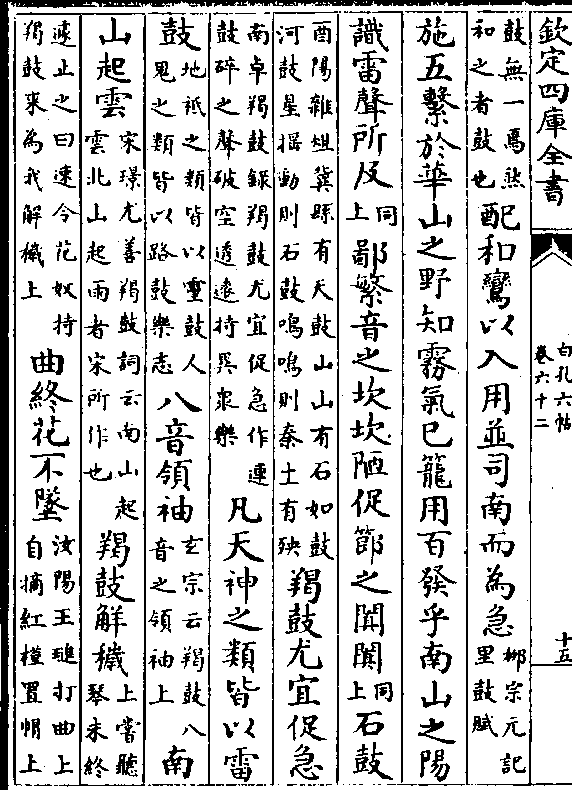 欽定四庫全書
白孔六帖
卷六十二
十五
鼓無一焉煞
和之者鼓也
配和鸞以入用並司南而為急
柳宗元記
里鼓賦
施五繫於華山之野知霧氣已籠用百發乎南山之陽
識雷聲所及
同
上
鄙繁音之坎坎陋促節之闐闐
同
上
石鼓
酉陽雜俎冀縣有天鼓山山有石如鼓
河鼓星揺動則石鼓鳴鳴則秦土有殃
羯鼓尤宜促急
南卓羯鼓録羯鼓尤宜促急作連
鼓碎之聲破空透遠特異衆樂
凡天神之類皆以雷
鼓
地祇之類皆以靈鼓人
鬼之類皆以路鼓樂志
八音領袖
玄宗云羯鼓八
音之領袖上
南
山起雲
宋璟尤善羯鼓詞云南山起
雲北山起雨者宋所作也
羯鼓解穢
上嘗聽
琴未終
遽止之曰速令花奴持
羯鼓來為我解穢上
曲終花不墜
汝陽王璡打曲上
自摘紅槿置帽上